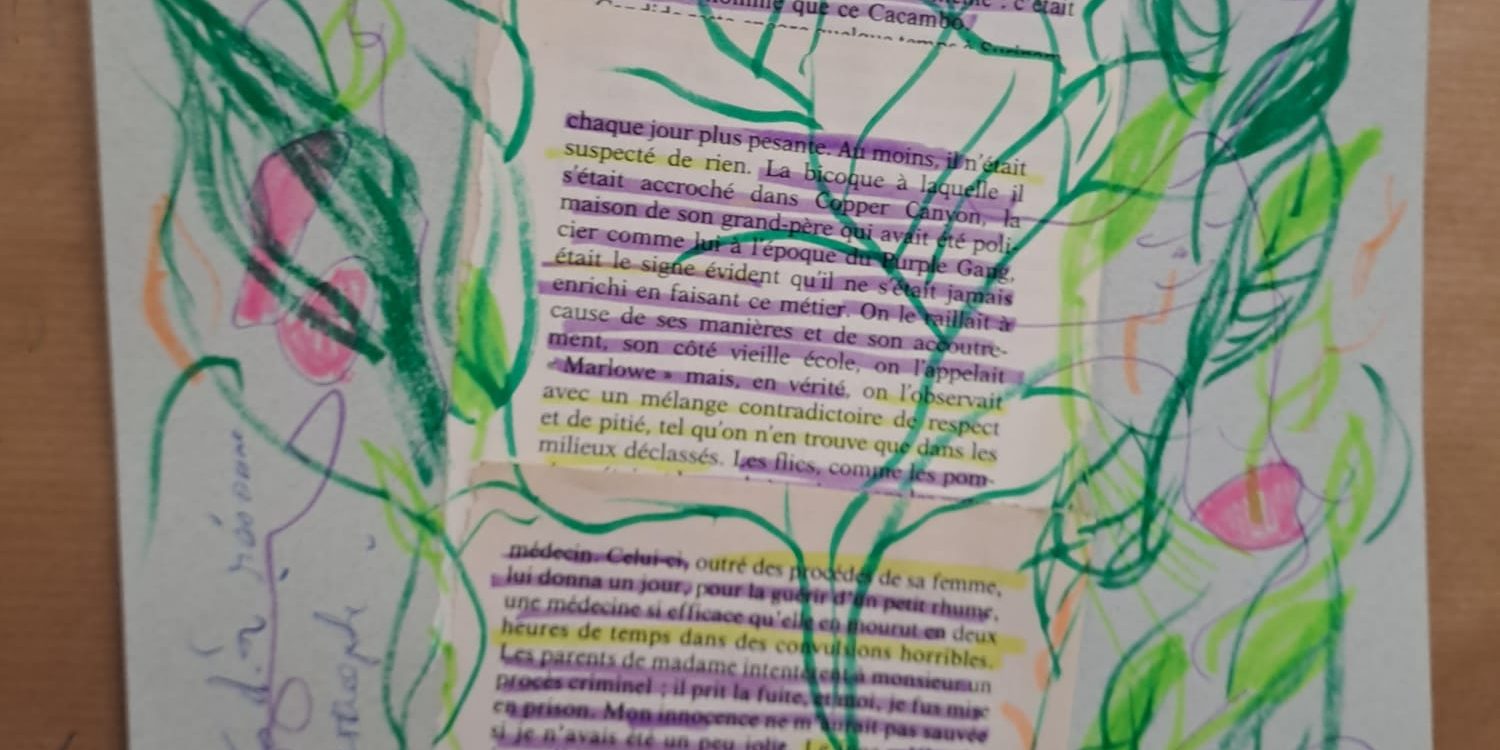 que ce Cacambo.
chaque jour plus pesante. Au moins, il n'était
suspecté de rien. La bicoque à laquelle il
s'était accroché dans Copper Canyon, la
maison de son grand-père qui avait été poli-
cier comme lui à l'époque du Purple Gang,
était le signe évident qu'il ne s'était jamais
enrichi en faisant ce métier. On le raillait à
cause de ses manières et de son accoutre-
ment, son côté vieille école, on l'appelait
« Marlowe » mais, en vérité, on l'observait
avec un mélange contradictoire de respect
et de pitié, tel qu'on n'en trouve que dans les
milieux déclassés. Les flics, comme les pom-
médecin. Celui-ci, outré des procédés de sa femme,
lui donna un jour, pour la guérir d'un petit rhume,
une médecine si efficace qu'elle en mourut en deux
heures de temps dans des convulsions horribles.
Les parents de madame intentèrent à monsieur un
procès criminel ; il prit la fuite, et moi, je fus mise
en prison. Mon innocence ne m'aurait pas sauvée
si je n'avais été un peu jolie.